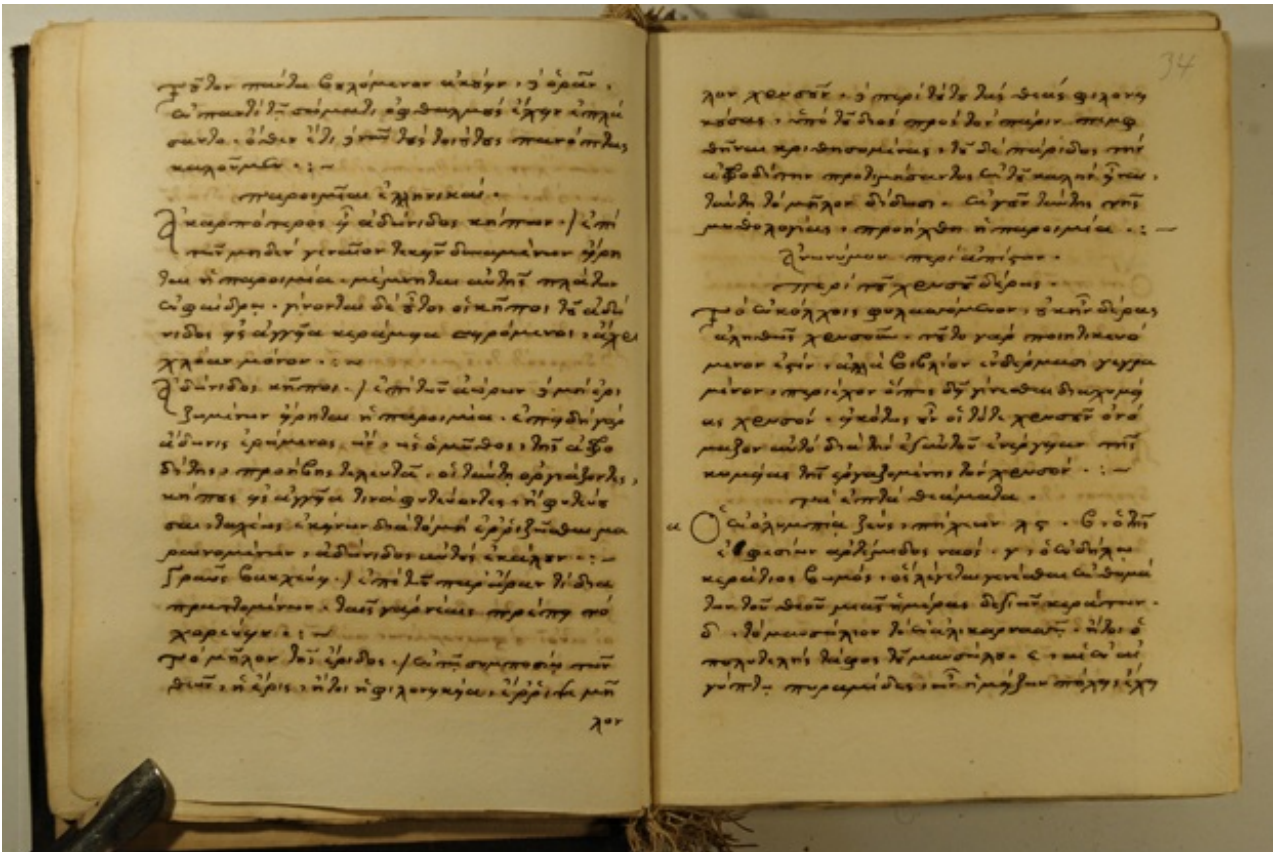 τοῦτον πάντα βουλόμενον ἀκούειν, καὶ ὁρᾶν,
ἐν παντὶ τῷ σώματι ὀφθαλμοὺς ἔχειν ἐπλά
σαντο. ὅθεν ἔτι καὶ νῦν τοὺς τοιούτους πανόπτας
καλοῦμεν. :~
παροιμίαι ἑλληνικαί.
Ἀκαρπότερος εἶ ἀδώνιδος κήπων. / ἐπὶ
τῶν μηδὲν γενναῖον τεκεῖν δυναμένων εἴρη
ται ἡ παροιμία. μέμνηται αὐτῆς πλάτων
ἐν φαίδρῳ. γίνονται δὲ οὗτοι οἱ κῆποι τοῦ ἀδώ
νιδος εἰς ἀγγεῖα κεράμεια σπειρόμενοι, ἄχρι
χλόαν μόνον. :~
Ἀδώνιδος κῆποι. / ἐπὶ τῶν ἀώρων καὶ μὴ ἐρι
ζωμένων εἴρηται ἡ παροιμία. ἐπειδὴ γὰρ
ἄδωνις ἐρώμενος ὢν, ὡς ὁ μῦθος, τῆς ἀφρο
δίτης, προήβης τελευτᾶ. οἱ ταύτῃ ὀργιάζοντες,
κήπους εἰς ἀγγεῖα τινὰ φυτεύοντες, ἢ φυτεύου
σαι, ταχέως ἐκείνων διὰ τὸ μὴ ἐρριζῶσθαι μα
ραινομένων, ἀδώνιδος αὐτοὺς ἐκάλουν. :~
Γραῦς βακχεύει. / ἐπὶ τῶν παρ' ὥραν τὶ δια
πραττομένων. ταῖς γὰρ νέαις πρέπει τὸ
χορεύειν. :~
Τὸ μῆλον τῆς ἔριδος. / ἐν τῷ συμποσίῳ τῶν
θεῶν, ἡ ἔρις, ἤτοι ἡ φιλονεικία, ἔρριψε μῆ
λον
34
λον χρυσοῦν. καὶ περὶ τούτου τὰς θεὰς φιλονει
κούσας, ὑπὸ τοῦ διὸς πρὸς τὸν πάριν πεμφ
θῆναι κριθησομένας. τοῦ δὲ πάριδος τὴν
ἀφροδίτην προτιμήσαντος ἐν τῷ καλὴν εἶναι,
ταύτῃ τὸ μῆλον δίδωσι. ἐκ γοῦν ταύτης τῆς
μυθολογίας, προήχθη ἡ παροιμία. :~
Ἀνωνύμου περὶ ἀπίστων.
περὶ τοῦ χρυσοῦ δέρας.
Τὸ ἐν κόλχοις φυλαττόμενον, οὐκ ἦν δέρας
ἀληθῶς χρυσοῦν. τοῦτο γὰρ ποιητικευό
μενον ἐστίν. ἀλλὰ βιβλίον ἐν δέρμασι γεγρα
μένον, περιέχον ὅπως δεῖ γίνεσθαι διὰ χυμεί
ας χρυσόν. εἰκότως οὖν οἱ τότε χρυσοῦν ὀνό
μαζον αὐτὸ διὰ τὴν ἐξ αὐτοῦ ἐνέργειαν τῆς
χυμείας τῆς ἐργαζομένης τὸν χρυσόν. :~
τὰ ἑπτὰ θεάματα.
α Ὁ ἐν ὀλυμπίᾳ ζεύς, πήχεων λς. β, ὁ τῆς
ἐφεσίων ἀρτέμιδος ναός. γ, ὁ ἐν δήλῳ
κεράτιος βωμός, ὃς λέγεται γενέσθαι ἐκ θυμά
των τοῦ θεοῦ μιᾶς ἡμέρας δεξιῶν κεράτων.
δ. τὸ μαυσώλιον τὸ ἐν ἁλικαρνασῷ. ἤτοι ὁ
πολυτελὴς τάφος τοῦ μαυσώλου. ε, αἱ ἐν αἰ
γύπτῳ πυραμίδες, ὧν ἡ μείζων πόλιν ἔχει